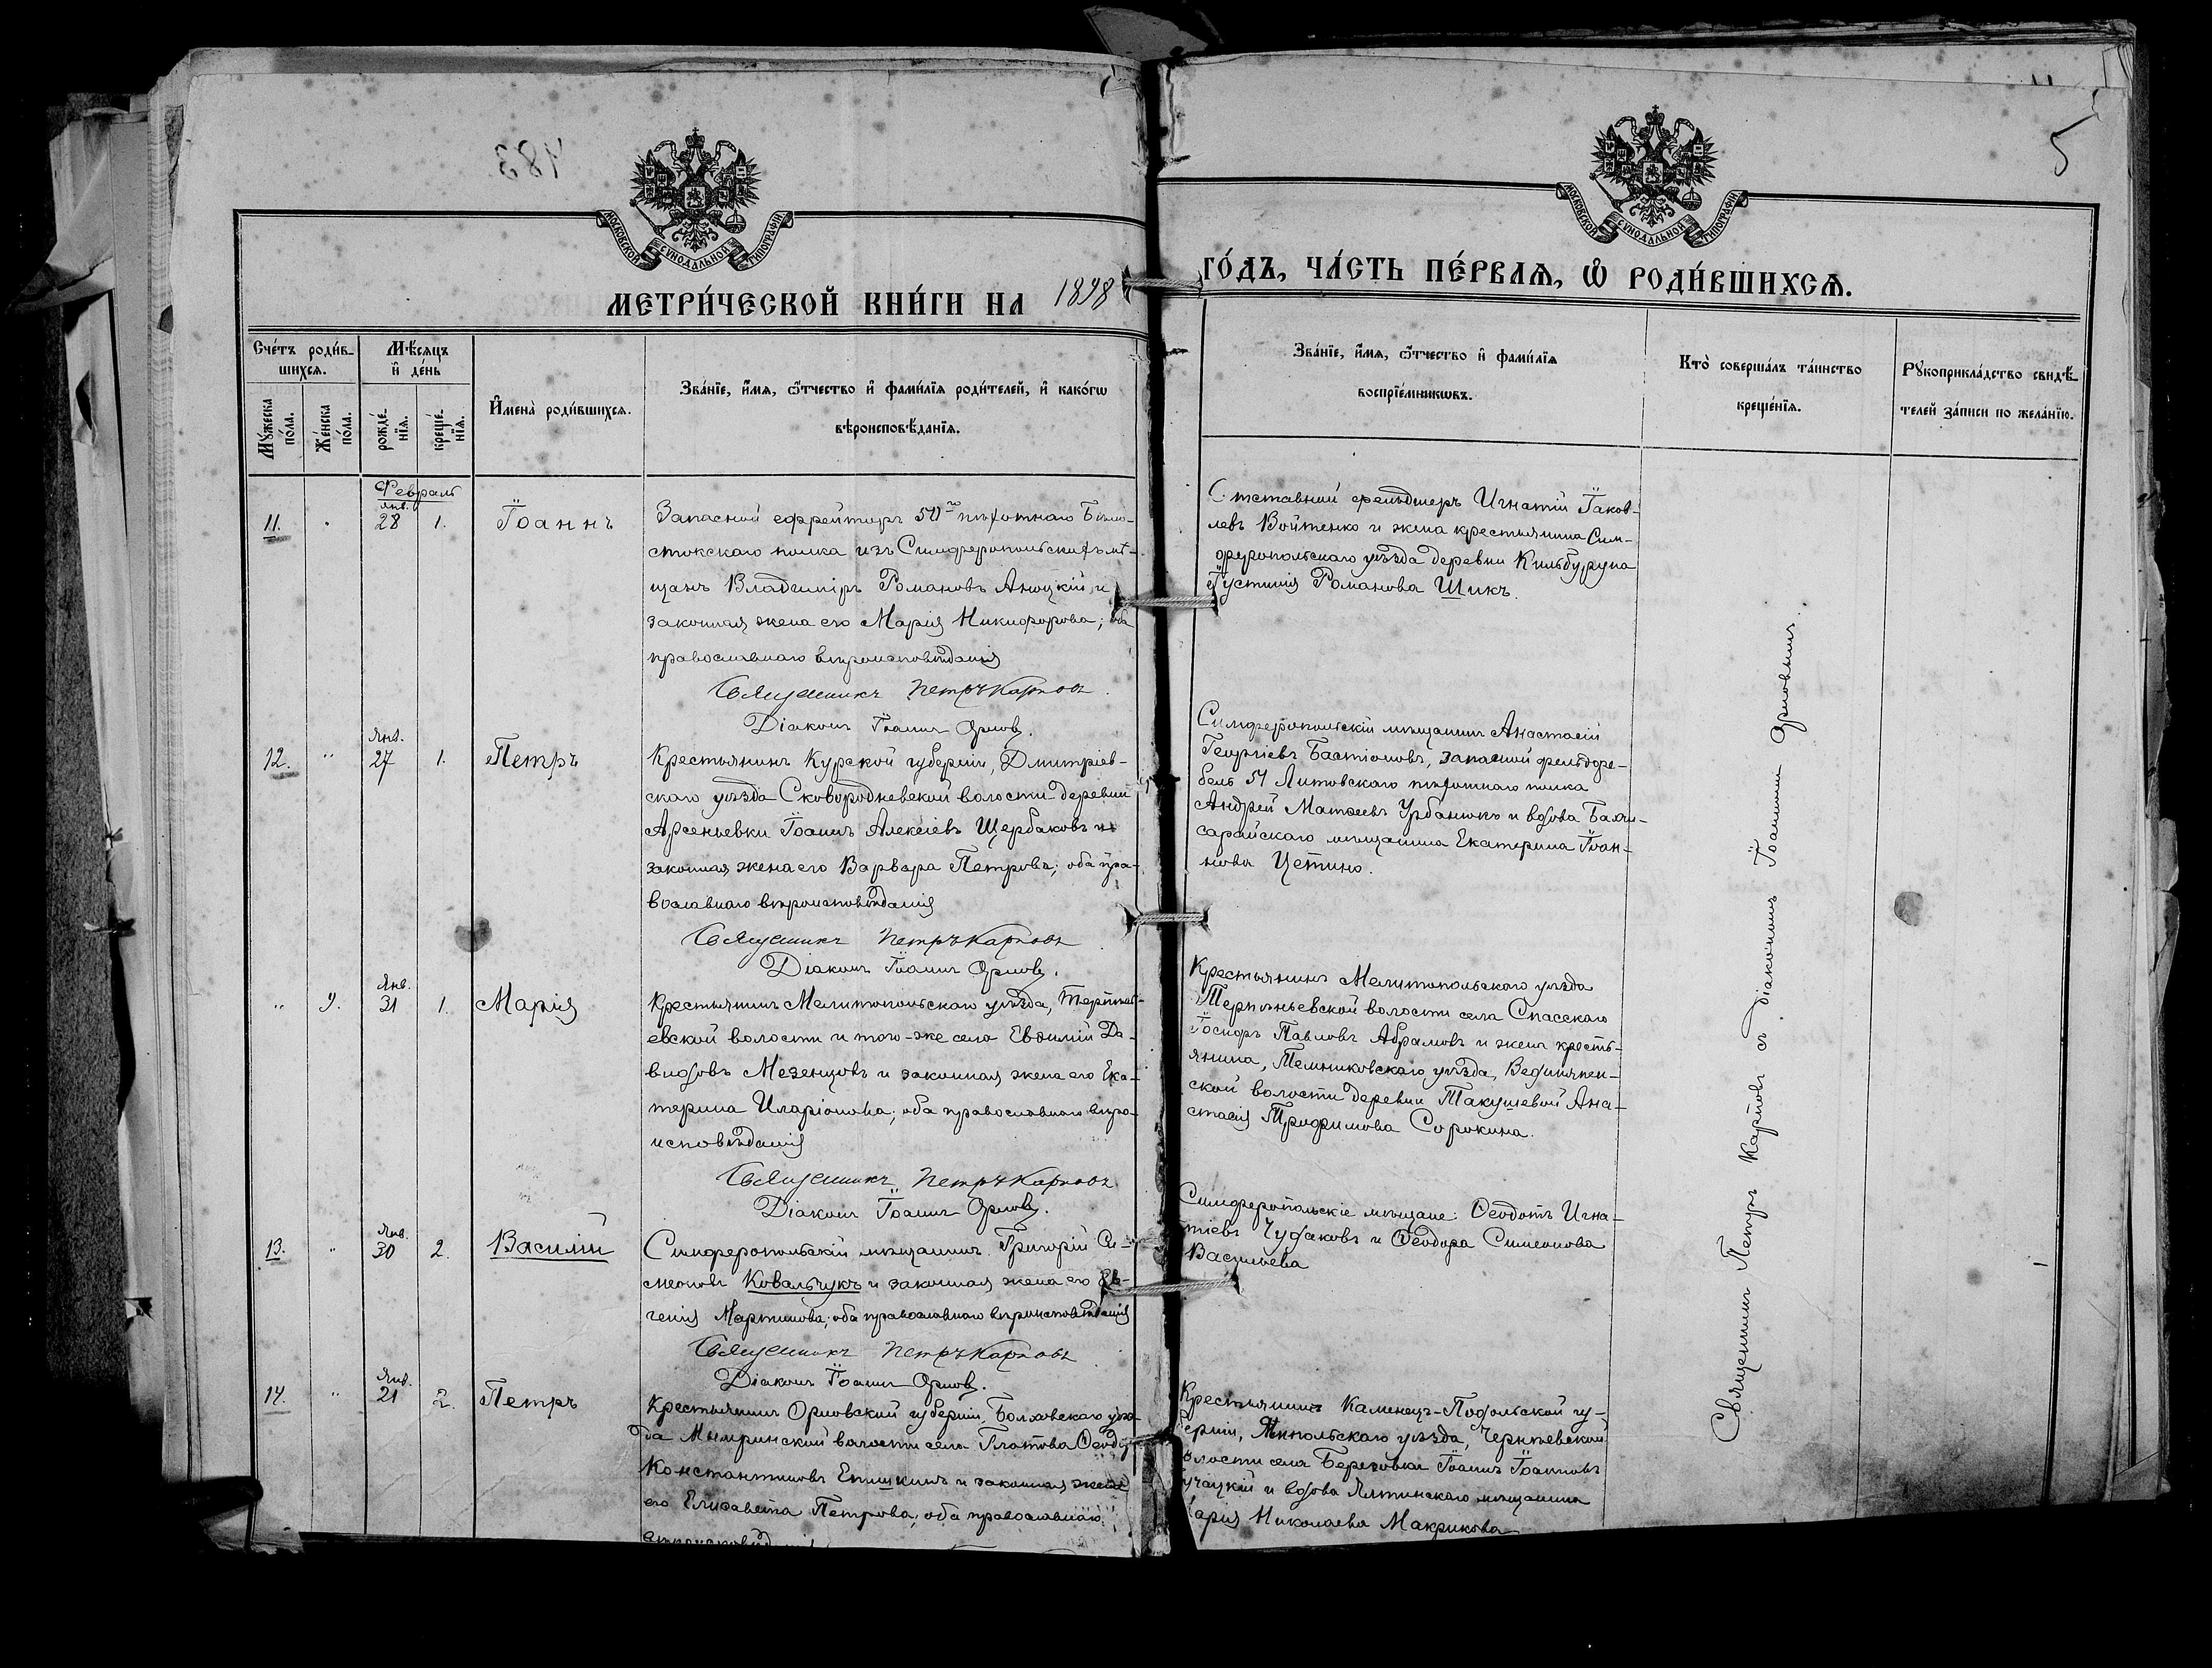 483
5
МОСКОВСКОЙ СѴНОДАЛЬНОЙ ТИПОГРАФІИ
МОСКОВСКОЙ СѴНОДАЛЬНОЙ ТИПОГРАФІИ
МЕТРИ́ЧЕСКОЙ КНИ́ГИ НА 1898
ГО́ДЪ, ЧА́СТЬ ПЕ́РВАѦ, Ѡ РОДИ́ВШИХСѦ.
Сче́тъ роди́в-
шихсѧ.
Мꙋ́жеска по́ла.
Же́нска по́ла.
Мѣ́сѧцъ и҆ де́нь
рожде́нїѧ.
креще́нїѧ.
И҆мена̀ роди́вшихсѧ.
Зва́нїе, и҆́мѧ, ѻ҆́тчество и҆ фами́лїѧ роди́телей, и҆ како́гѡ
вѣроисповѣ́данїѧ.
Зва́нїе, и҆́мѧ, ѻ҆́тчество и҆ фами́лїѧ
воспрїе́мникѡвъ.
Кто̀ соверша́лъ та́инство
креще́нїѧ.
Рꙋкоприкла́дство свидѣ́-
телей за́писи по жела́нїю.
Февраль
11. " янв. 28 1. Іоаннъ
Запасной ефрейторъ 50го пѣхотнаго Бѣло-
стокскаго полка изъ Симферопольскихъ мѣ-
щанъ Владиміръ Романовъ и
законная жена его Марія Никифорова; оба
православнаго вѣроисповѣданія
Священникъ Петръ Карповъ.
Діаконъ Іоаннъ Орловъ.
Отставной фельдшеръ Игнатій Іаков-
левъ Войтенко и жена крестьянина Сим-
феропольскаго уѣзда деревни Кильбуруна
Іустинія Романова Шикъ.
12. " Янв. 27 1. Петръ
Крестьянинъ Курской губерніи, Дмитріев-
скаго уѣзда Сковороdневской волости деревни
Арсеньевки Іоаннъ Алексіевъ Щербаковъ и
законная жена его Варвара Петрова; оба пра-
вославнаго вѣроисповѣданія
Священникъ Петръ Карповъ
Діаконъ Іоаннъ Орловъ.
Симферопольскій мѣщанинъ Анастасій
Георгіевъ Бастіоновъ, запасной фельдфе-
бель 51 Литовскаго пѣхотнаго полка
Андрей Матѳеевъ Урбанюкъ и вдова Бахчи-
сарайскаго мѣщанина Екатерина Іоан-
нова Цетино.
" 9. Янв. 31 1. Марія
Крестьянинъ Мелитопольскаго уѣзда, Терпѣнь-
евской волости и того-же села Евѳимій Да-
видовъ Мезенцовъ и законная жена его Ека-
терина Иларіонова; оба православнаго вѣро-
исповѣданія
Священникъ Петръ Карповъ
Діаконъ Іоаннъ Орловъ.
Крестьянинъ Мелитопольскаго уѣзда
Терпѣньевской волости села Спасскаго
Іосифъ Павловъ Абрамовъ и жена кресть-
янина, Темниковскаго уѣзда,
ской волости деревни Такушевой Ана-
стасія Трофимова Сорокина.
13. " Янв. 30 2. Василій
Симферопольскій мѣщанинъ Григорій Си-
меоновъ Ковальчукъ и законная жена его Ев-
генія Мартинова; оба православнаго вѣроисповѣданія
Священникъ Петръ Карповъ
Діаконъ Іоаннъ Орловъ.
Симферопольскіе мѣщане: Ѳеодотъ Игна-
тіевъ Чудаковъ и Ѳеодора Симеонова
Васильева
14. " Янв. 21 2. Петръ
Крестьянинъ Орловской губерніи, Болховскаго уѣз-
да Мымринской волости села Платова
Константиновъ Епишкинъ и законная жена
его Елисавета Петрова; оба православнаго
вѣроисповѣданія
Крестьянинъ Каменецъ-Подольской гу-
берніи, Ямпольскаго уѣзда,
волости села Березовки Іоаннъ Іоанновъ
и вдова Ялтинскаго мѣщанина
Марія Николаева Макрикова
Священникъ Петръ Карповъ съ діакономъ Іоанномъ Орловымъ.